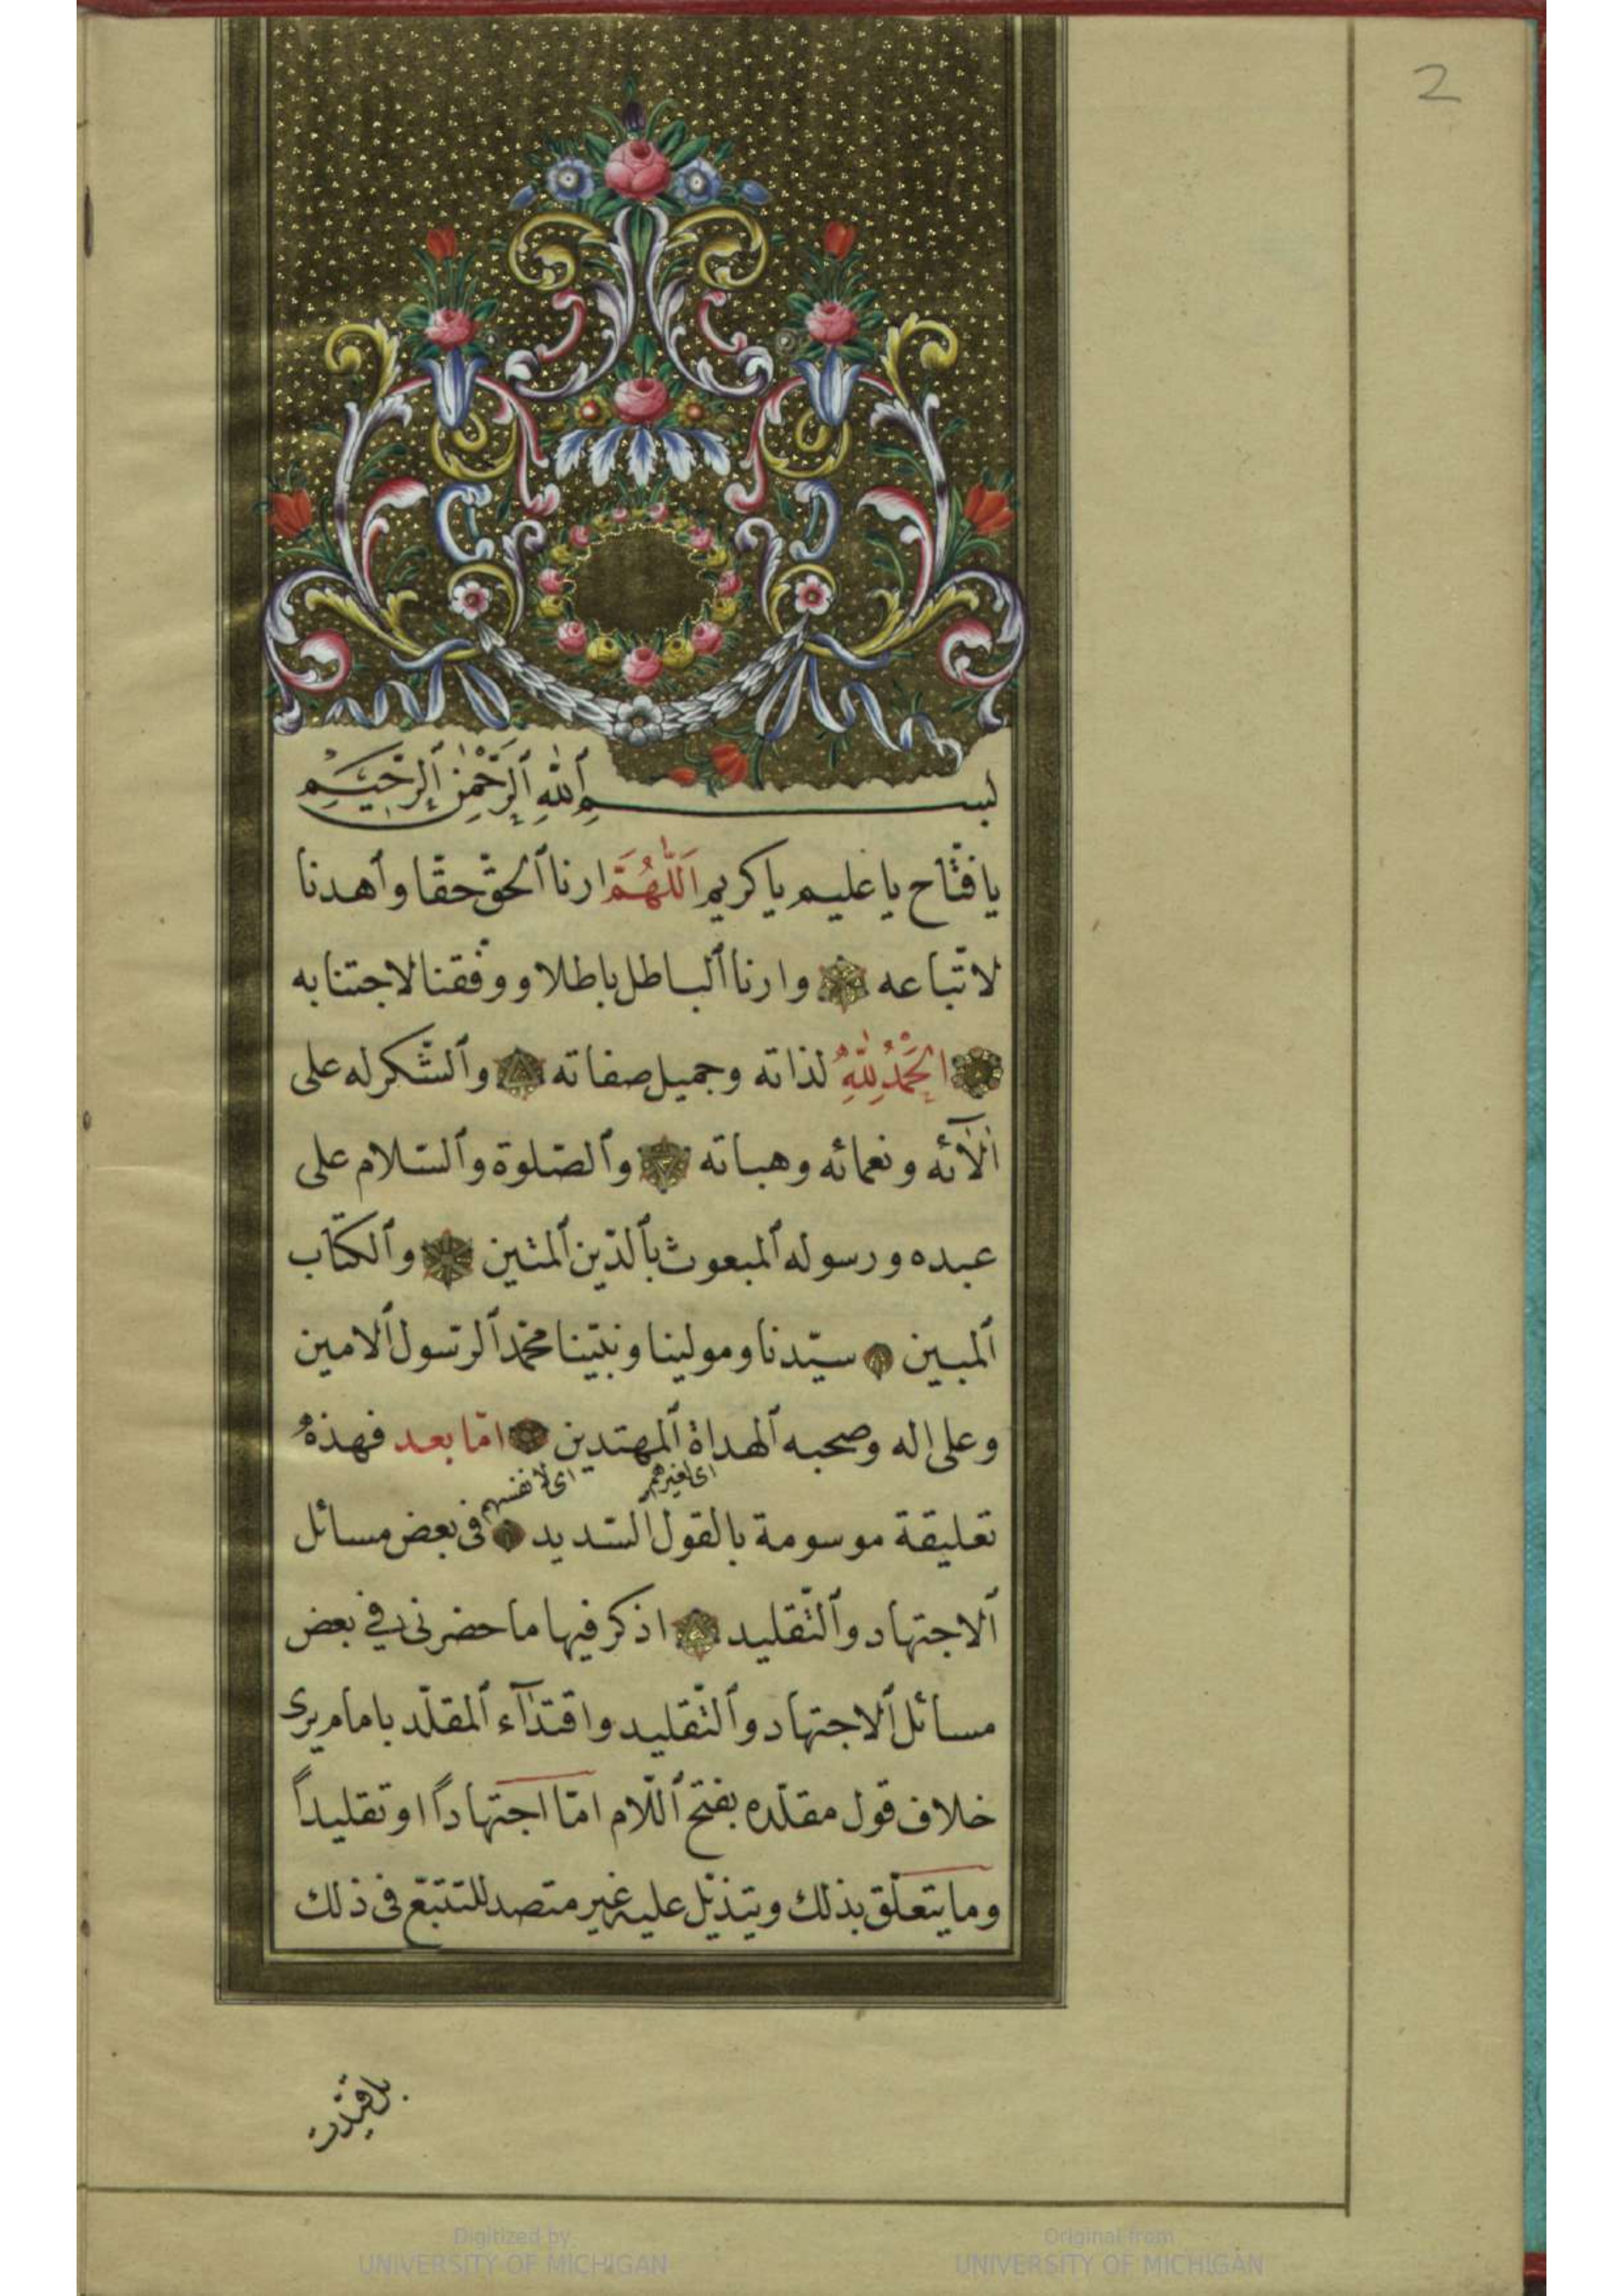 2
بسم ٱلله ٱلرّحمٰن ٱلرّحيم
يا فتّاح يا عليم يا كريم اَللّٰهُمَّ ارنا ٱلحقّ حقا وٱهدنا
لاتّباعه وارنا ٱلباطل باطلا ووفّقنا لاجتنابه
اَلْحَمْدُ لِلّٰهِ لذاته وجميل صفاته وٱلشّكر له على
اٰلآئه ونعمائه وهباته وٱلصّلوة وٱلسّلام على
عبده ورسوله ٱلمبعوث بٱلدّين ٱلمتين وٱلكتاب
ٱلمبين سيّدنا ومولينا ونبيّنا محمّد ٱلرّسول ٱلامين
وعلى اله وصحبه ٱلهداة ٱلمهتدين امّا بعد فهذه
اى لغيرهم اى لانفسهم
تعليقة موسومة بالقول ٱلسّديد فى بعض مسائل
ٱلاجتهاد وٱلتّقليد اذكر فيها ما حضرنى فى بعض
مسائل ٱلاجتهاد وٱلتّقليد واقتدآء ٱلمقلّد بامام يرى
خلاف قول مقلّده بفتح ٱللّام امّا اجتهاداً او تقليداً
وما يتعلّق بذلك ويتذيّل عليه غير متصد للتتبّع فى ذلك
Digitized by UNIVERSITY OF MICHIGAN
Original from UNIVERSITY OF MICHIGAN